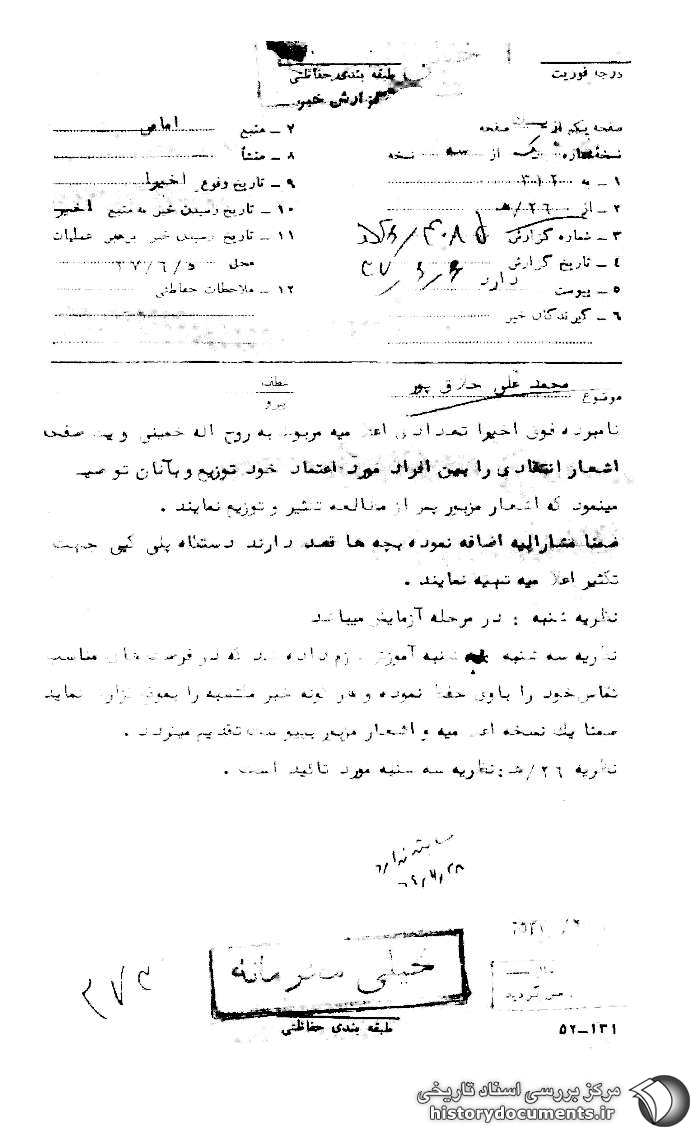 درجه فوریت
طبقه بندی حفاظتی
گزارش خبر
صفحه یکم از صفحه
نسخه شماره یک از سه نسخه
۱ - به ۳۱۲
۲ - از ۲۶/ه
۳ - شماره گزارش
۴ - تاریخ گزارش
۵ - پیوست دارد
۶ - گیرندگان خبر
۷ - منبع
۸ - منشأ
۹ - تاریخ وقوع اخیرا
۱۰ - تاریخ رسیدن خبر به منبع اخیر
۱۱ - تاریخ رسیدن خبر برهبر عملیات
محل ۳۷/۶/۵
۱۲ - ملاحظات حفاظتی
موضوع محمد علی پور
عطف
پیرو
نامبرده فوق اخیرا تعدادی اعلامیه مربوط به روح اله خمینی و یک صفحه
اشعار انتقادی را بین افراد مورد اعتماد خود توزیع و بآنان توصیه
مینمود که اشعار مزبور پس از مطالعه تکثیر و توزیع نمایند .
ضمنا مشارالیه اضافه نموده بچه ها قصد دارند دستگاه پلی کپی جهت
تکثیر اعلامیه تهیه نمایند .
نظریه شنبه : در مرحله آزمایش میباشد
نظریه سه شنبه شنبه آموزش لازم داده شد که در فرصت های مناسب
تماس خود را باوی حفظ نموده و هر گونه خبر مکتسبه را بموقع گزارش نماید
ضمنا یک نسخه اعلامیه و اشعار مزبور بپیوست تقدیم میگردد .
نظریه ۲۶/ه : نظریه سه شنبه مورد تائید است .
سابقه ندارد
خیلی محرمانه
طبقه بندی حفاظتی
۵۲-۱۳۱
مرکز بررسی اسناد تاریخی
historydocuments.ir